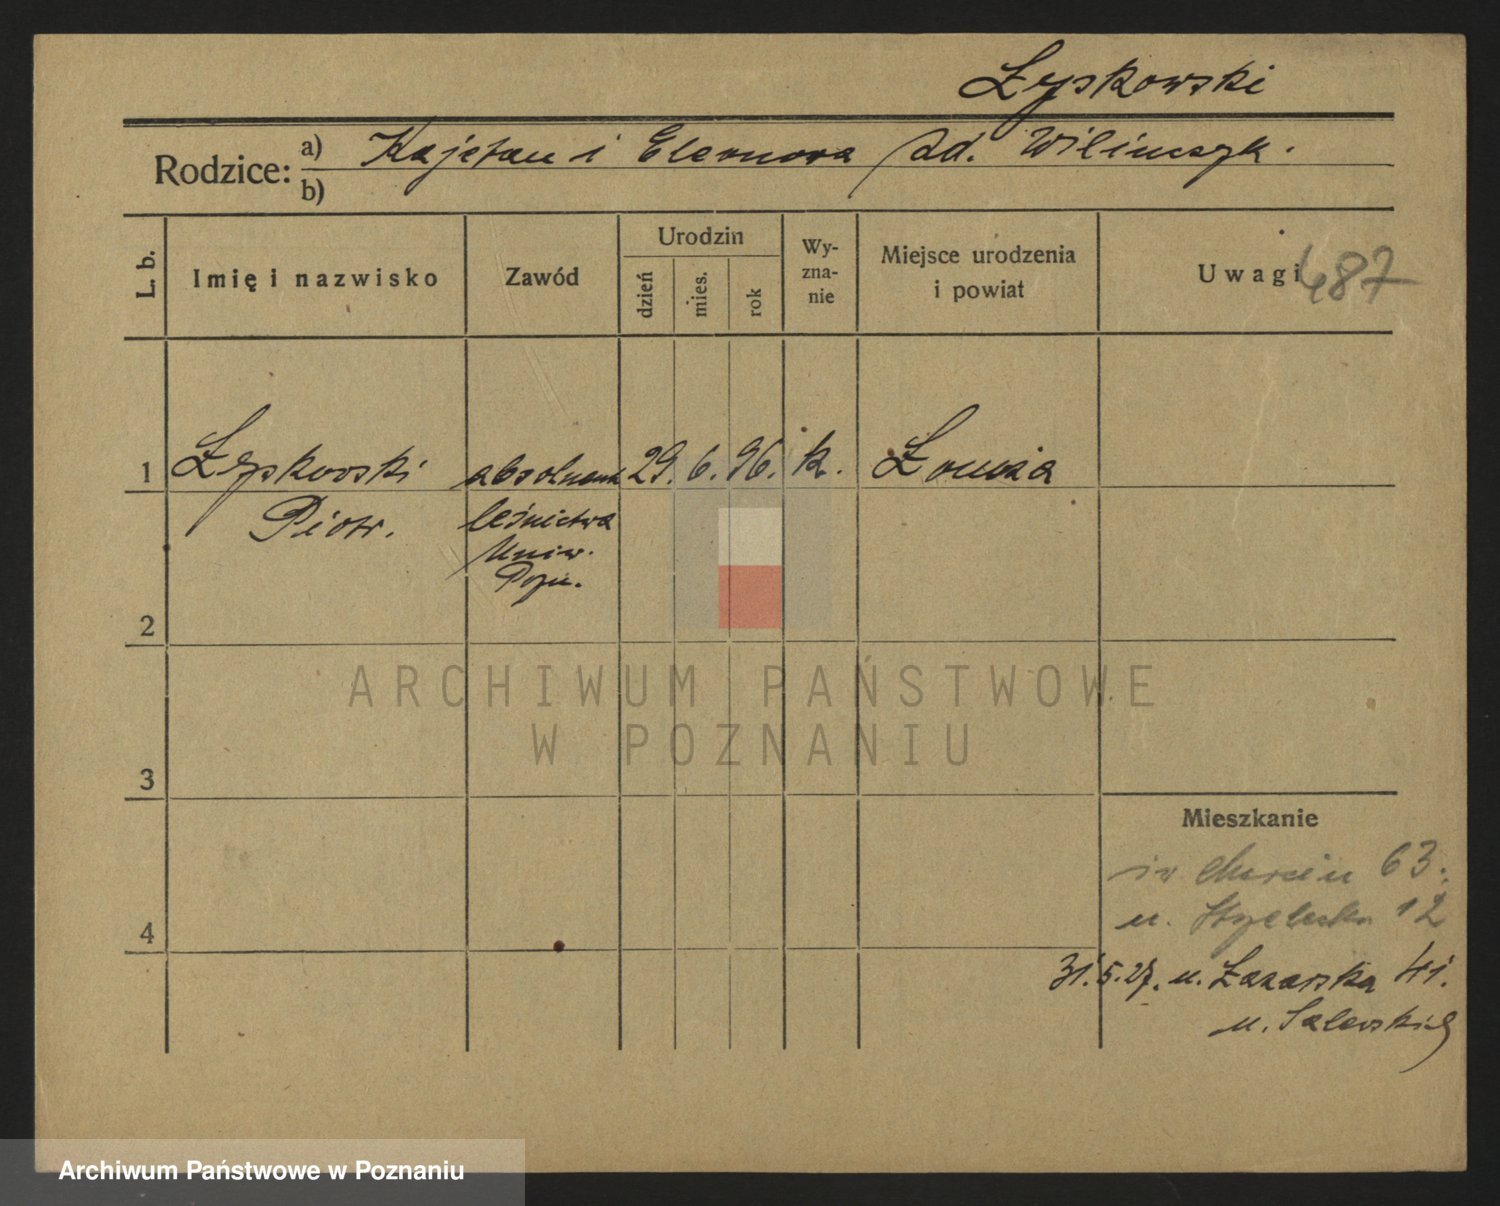 Łyskowski
Rodzice: a) Kajetan i Eleonora
b)
L. b.
Imię i nazwisko
Zawód
Urodzin
dzień
mies.
rok
Wy-
zna-
nie
Miejsce urodzenia
i powiat
Uwagi 487
1 Łyskowski absolwent 29. 6. 96. k. Łomża
Piotr. leśnictwa
Uniw.
Pozn.
2
3
4
Mieszkanie
św Marcin 63.
u. 12
31.5.27. u. Łazarska 41.
u.
ARCHIWUM PAŃSTWOWE
W POZNANIU
Archiwum Państwowe w Poznaniu